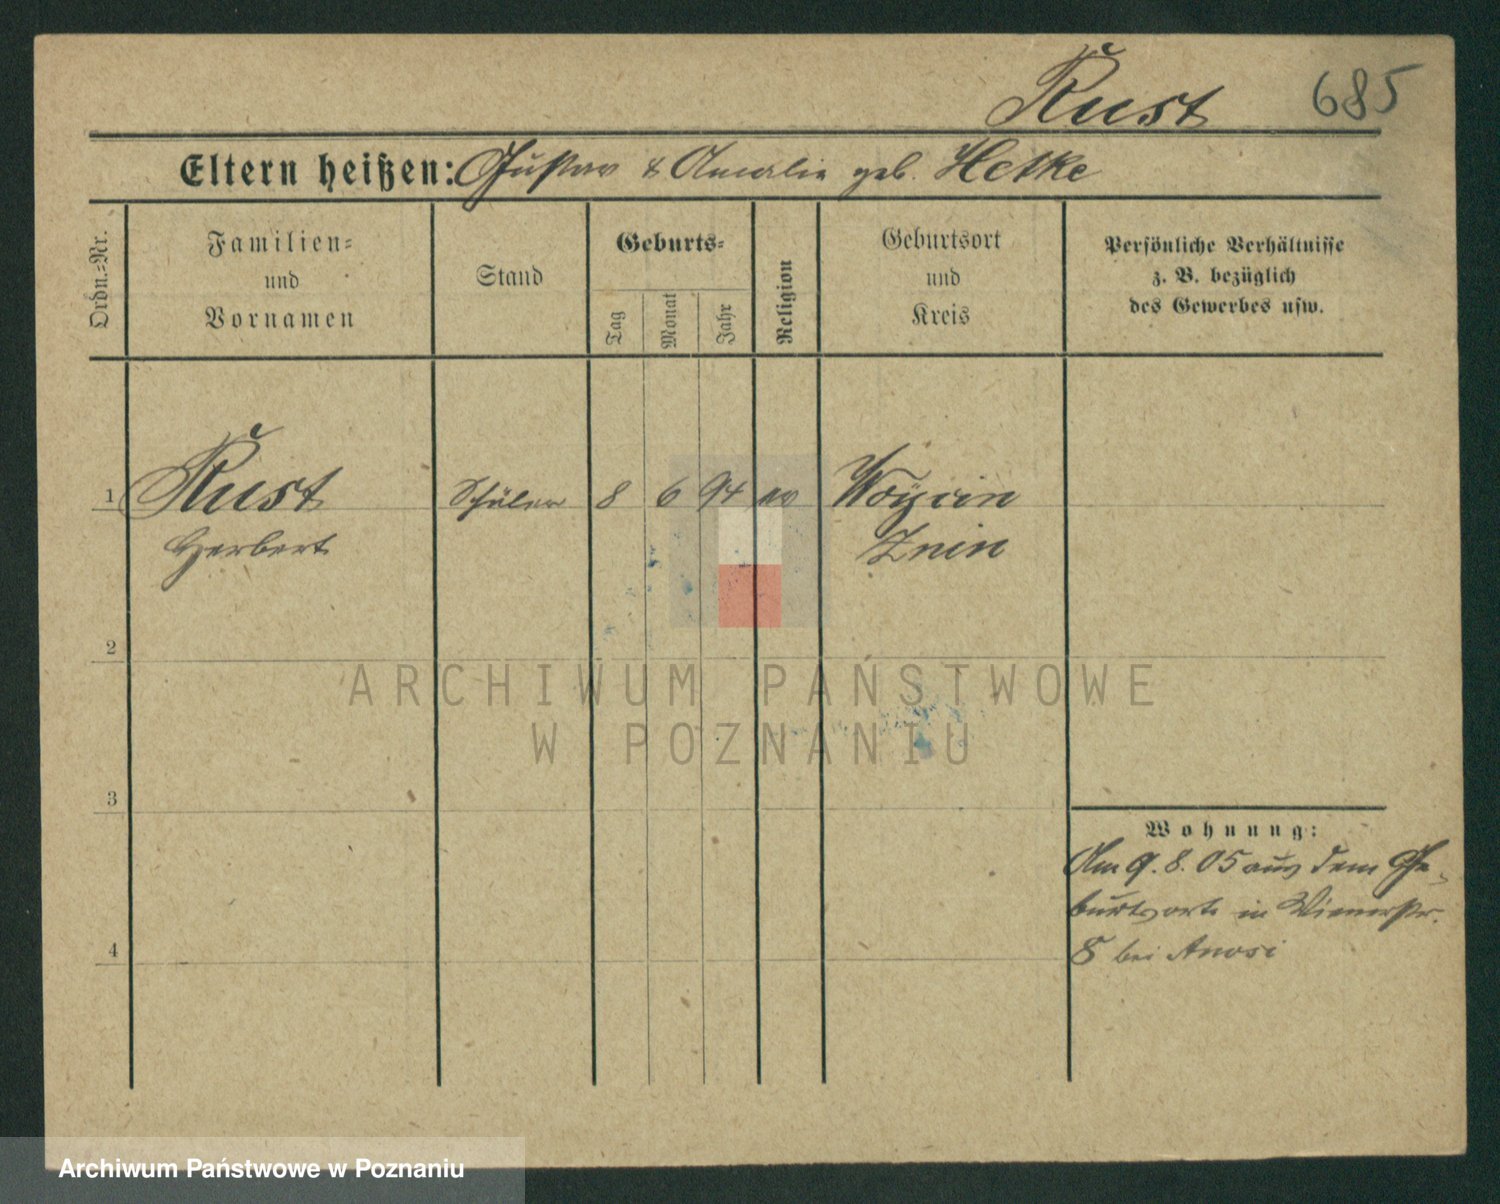 Rust 685
Eltern heißen: Gustav & Amalie geb. Hetke
Ordn.=Nr.
Familien=
und
Vornamen
Stand
Geburts=
Tag
Monat
Jahr
Religion
Geburtsort
und
Kreis
Persönliche Verhältnisse
z. B. bezüglich
des Gewerbes usw.
1 Rust Schüler 8 6 94 ev Woycin
Herbert Znin
2
ARCHIWUM PAŃSTWOWE
W POZNANIU
3
Wohnung:
Am 9. 8. 05 aus dem Ge-
burtsorte in Wienerstr.
4
8 bei
Archiwum Państwowe w Poznaniu